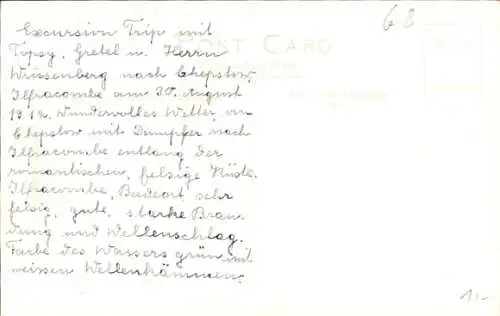 68
POST CARD
Excursion Trip mit
Topsy, Gretel u. Herrn
Wissenberg nach Chepstow,
Ilfracombe am 30. August
1912. Wundervolles Wetter, von
Chepstow mit Dampfer nach
Ilfracombe entlang der
romantischen, felsige Küste.
Ilfracombe, Badeort, sehr
felsig, gute, starke Bran-
dung und Wellenschlag.
Farbe des Wassers grün mit
weissen Wellenkämmen.
1,-